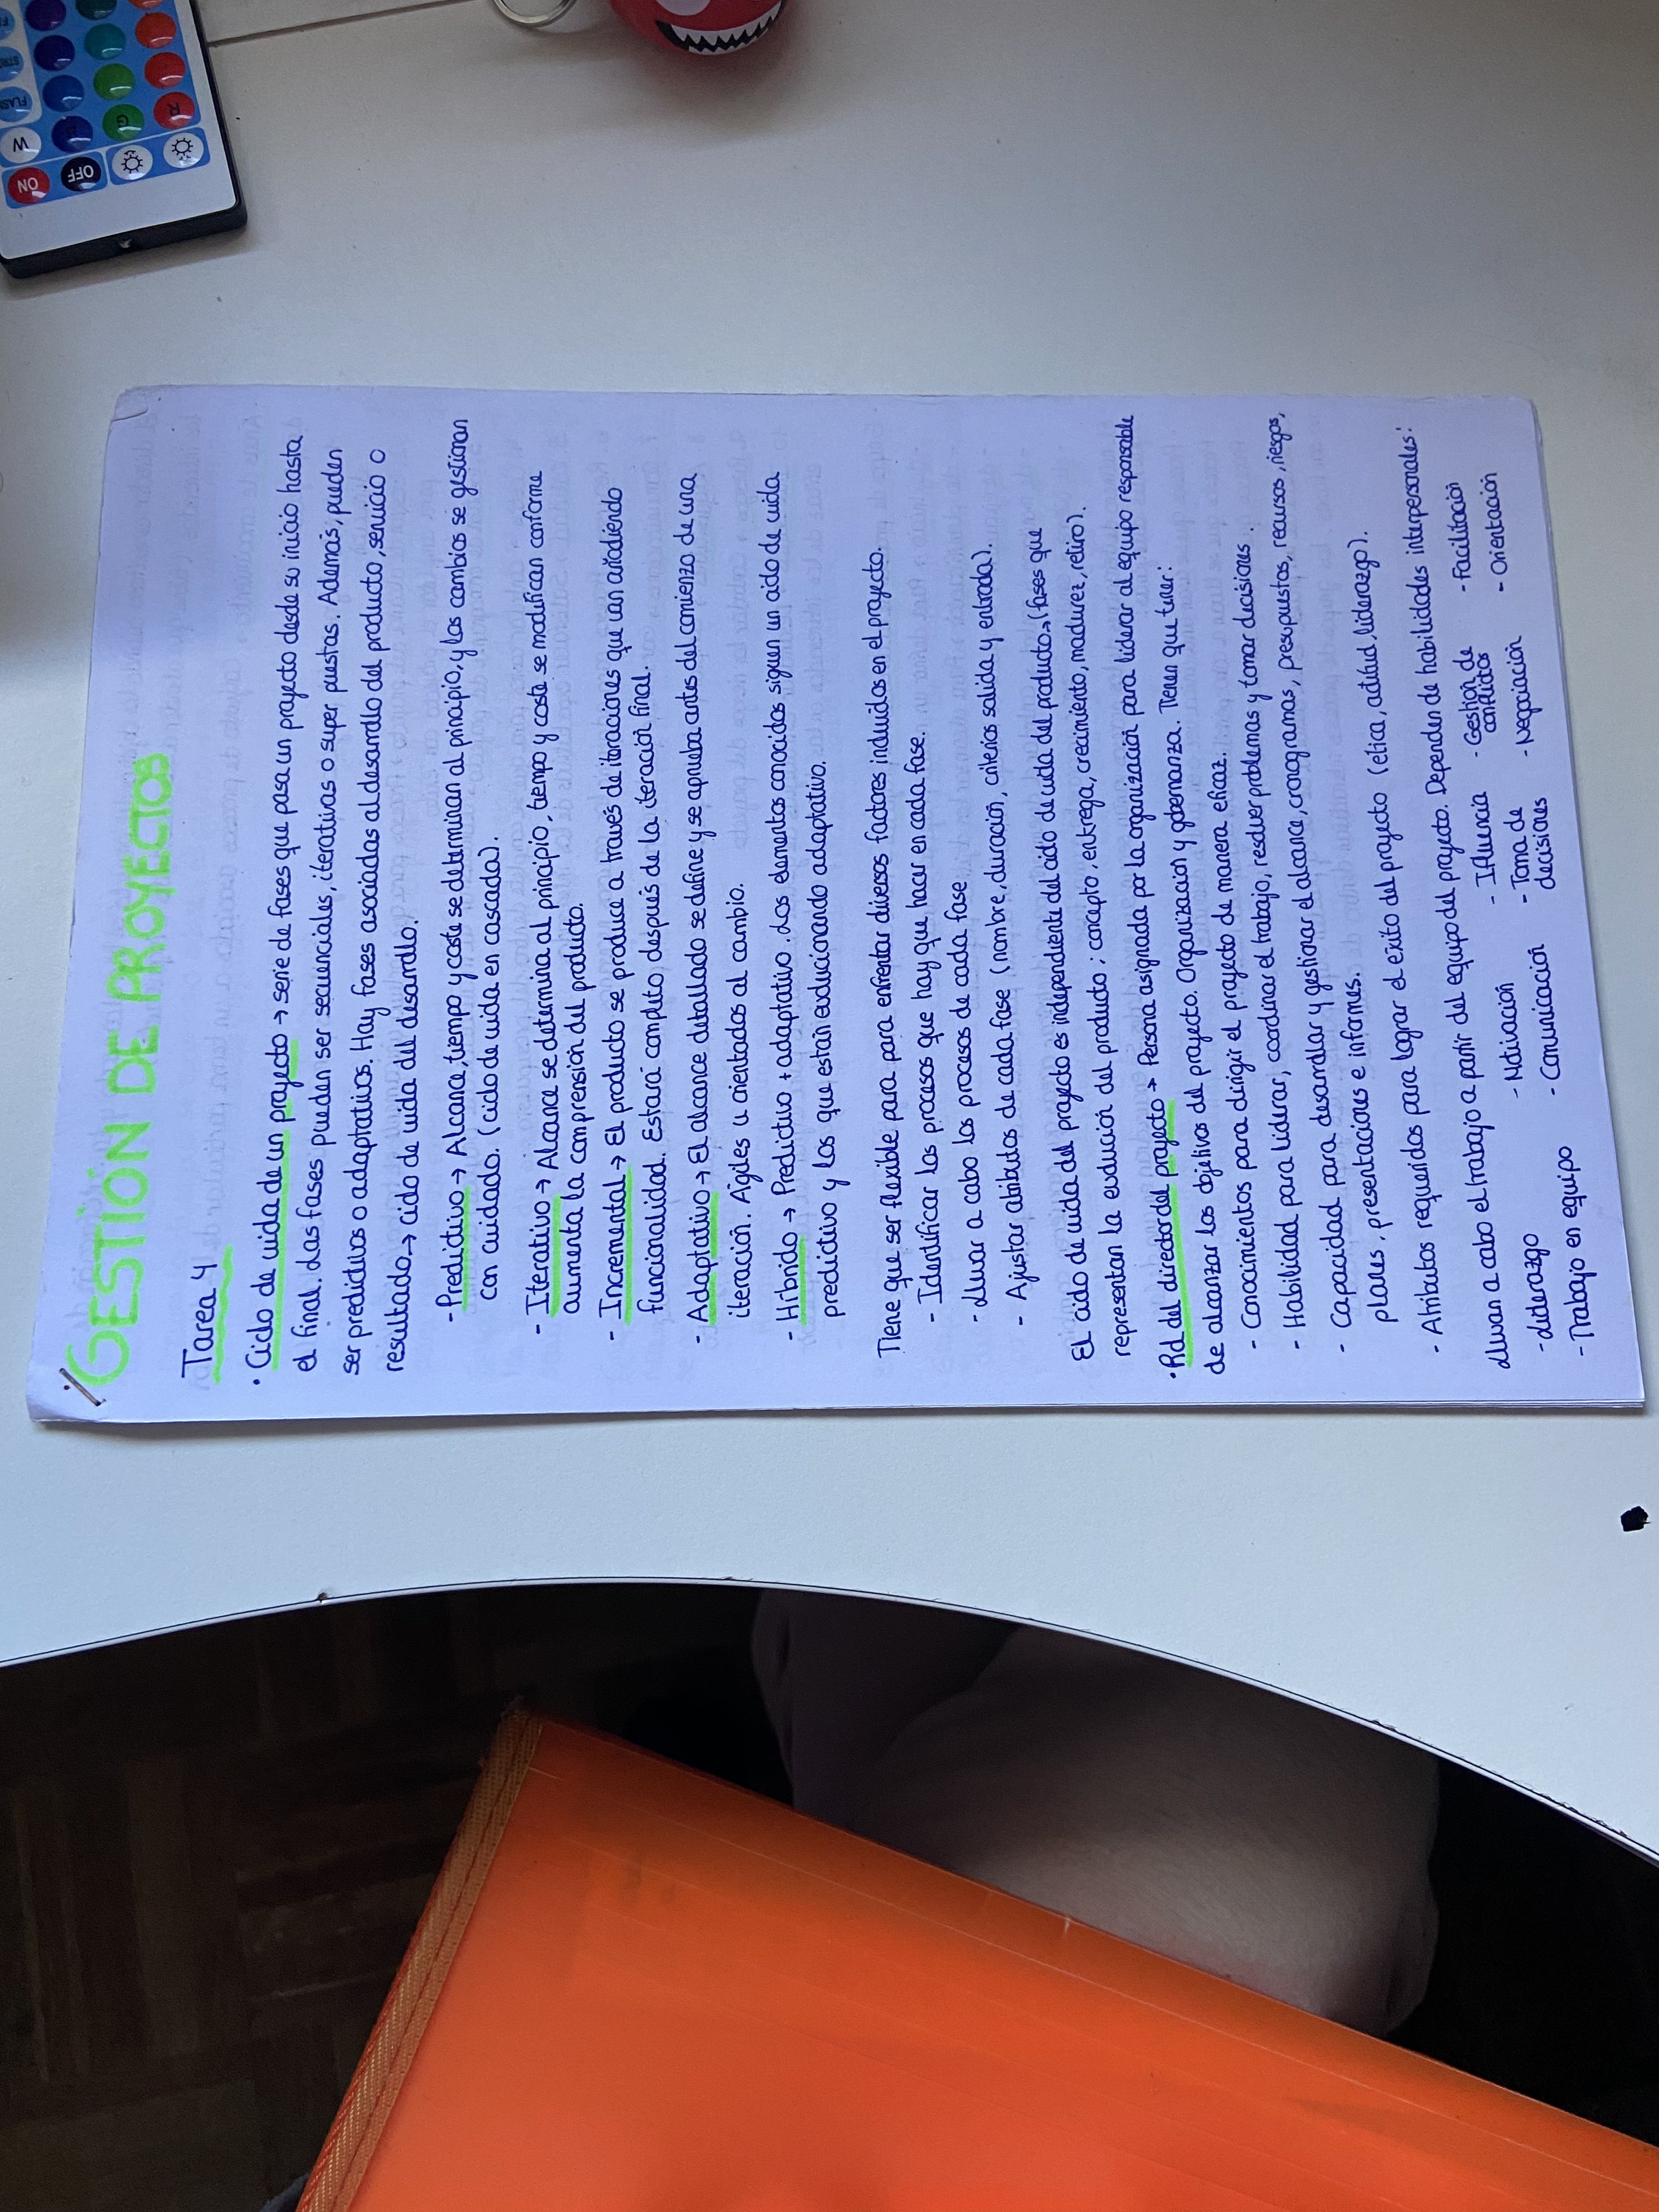 GESTIÓN DE PROYECTOS
Tarea 4
· Ciclo de vida de un proyecto → serie de fases que pasa un proyecto desde su inicio hasta
el final. Las fases pueden ser secuenciales, iterativas o super puestas. Además, pueden
ser predictivos o adaptativos. Hay fases asociadas al desarrollo del producto, servicio o
resultado → ciclo de vida del desarrollo:
- Predictivo → Alcance, tiempo y coste se determinan al principio, y los cambios se gestionan
con cuidado. (ciclo de vida en cascada).
- Iterativo → Alcance se determina al principio, tiempo y coste se modifican conforme
aumenta la comprensión del producto.
- Incremental → El producto se produce a través de iteraciones que van añadiendo
funcionalidad. Estará completo después de la iteración final.
- Adaptativo → El alcance detallado se define y se aprueba antes del comienzo de una
iteración. Ágiles u orientados al cambio.
- Híbrido → Predictivo + adaptativo. Los elementos conocidos siguen un ciclo de vida
predictivo y los que están evolucionando adaptativo.
Tiene que ser flexible para para enfrentar diversos factores incluidos en el proyecto.
- Identificar los procesos que hay que hacer en cada fase.
- Llevar a cabo los procesos de cada fase
- Ajustar atributos de cada fase (nombre, duración, criterios salida y entrada).
El ciclo de vida del proyecto es independiente del ciclo de vida del producto → (fases que
representan la evolución del producto; concepto, entrega, crecimiento, madurez, retiro).
· Rol del director del proyecto → Persona asignada por la organización para liderar al equipo responsable
de alcanzar los objetivos del proyecto. Organización y gobernanza. Tienen que tener:
- Conocimientos para dirigir el proyecto de manera eficaz.
- Habilidad para liderar, coordinar el trabajo, resolver problemas y tomar decisiones.
- Capacidad para desarrollar y gestionar el alcance, cronogramas, presupuestos, recursos, riesgos,
planes, presentaciones e informes.
- Atributos requeridos para lograr el éxito del proyecto (ética, actitud, liderazgo).
Llevan a cabo el trabajo a partir del equipo del proyecto. Dependen de habilidades interpersonales:
- Liderazgo - Motivación - Influencia - Gestión de conflictos - Facilitación
- Trabajo en equipo - Comunicación - Toma de decisiones - Negociación - Orientación
ON
OFF
W
FLASH
G
R